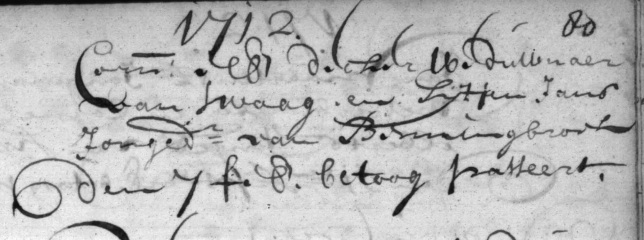 1712. 80
Corn: Dirksz Weduwnaer
van Swaag en Sytjen Jans
Jonged.r van Benningbroek
den 7 f betoog passeert.